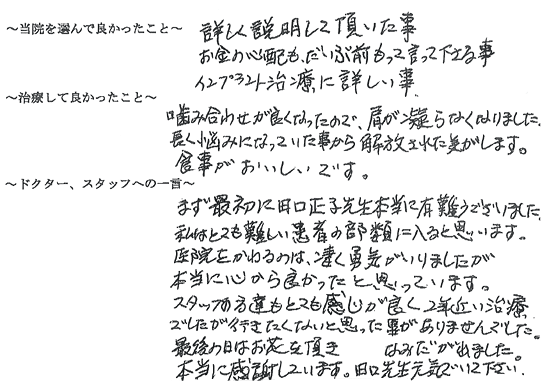 ～当院を選んで良かったこと～
詳しく説明して頂いた事
お金の心配も、だいぶ前もって言って下さる事
インプラント治療に詳しい事
～治療して良かったこと～
噛み合わせが良くなったので、肩が凝らなくなりました。
長く悩みになっていた事から解放された気がします。
食事がおいしいです。
～ドクター、スタッフへの一言～
まず最初に田口正子先生本当に有難うございました。
私はとても難しい患者の部類に入ると思います。
医院をかわるのは、凄く勇気がいりましたが
本当に心から良かったと思っています。
スタッフの方達もとても感じが良く、2年近い治療
でしたが行きたくないと思った事がありませんでした。
最後の日はお花を頂き なみだが出ました。
本当に感謝しています。田口先生元気でいて下さい。